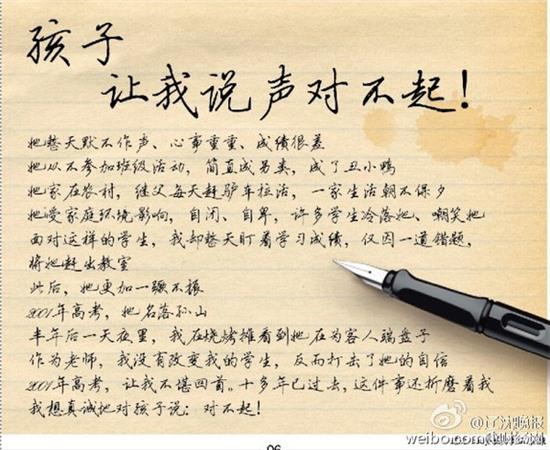 孩子
让我说声对不起！
她整天默不作声、心事重重、成绩很差
她从不参加班级活动，简直成另类，成了丑小鸭
她家在农村，继父每天赶驴车拉活，一家生活朝不保夕
她受家庭环境影响，自闭、自卑，许多学生冷落她、嘲笑她
面对这样的学生，我却整天盯着学习成绩，仅因一道错题，
将她赶出教室
此后，她更加一蹶不振
2001年高考，她名落孙山
半年后一天夜里，我在烧烤摊看到她在为客人端盘子
作为老师，我没有改变我的学生，反而打击了她的自信
2001年高考，让我不堪回首。十多年已过去，这件事还折磨着我
我想真诚地对孩子说：对不起！
@辽沈晚报
weibo.com/
06